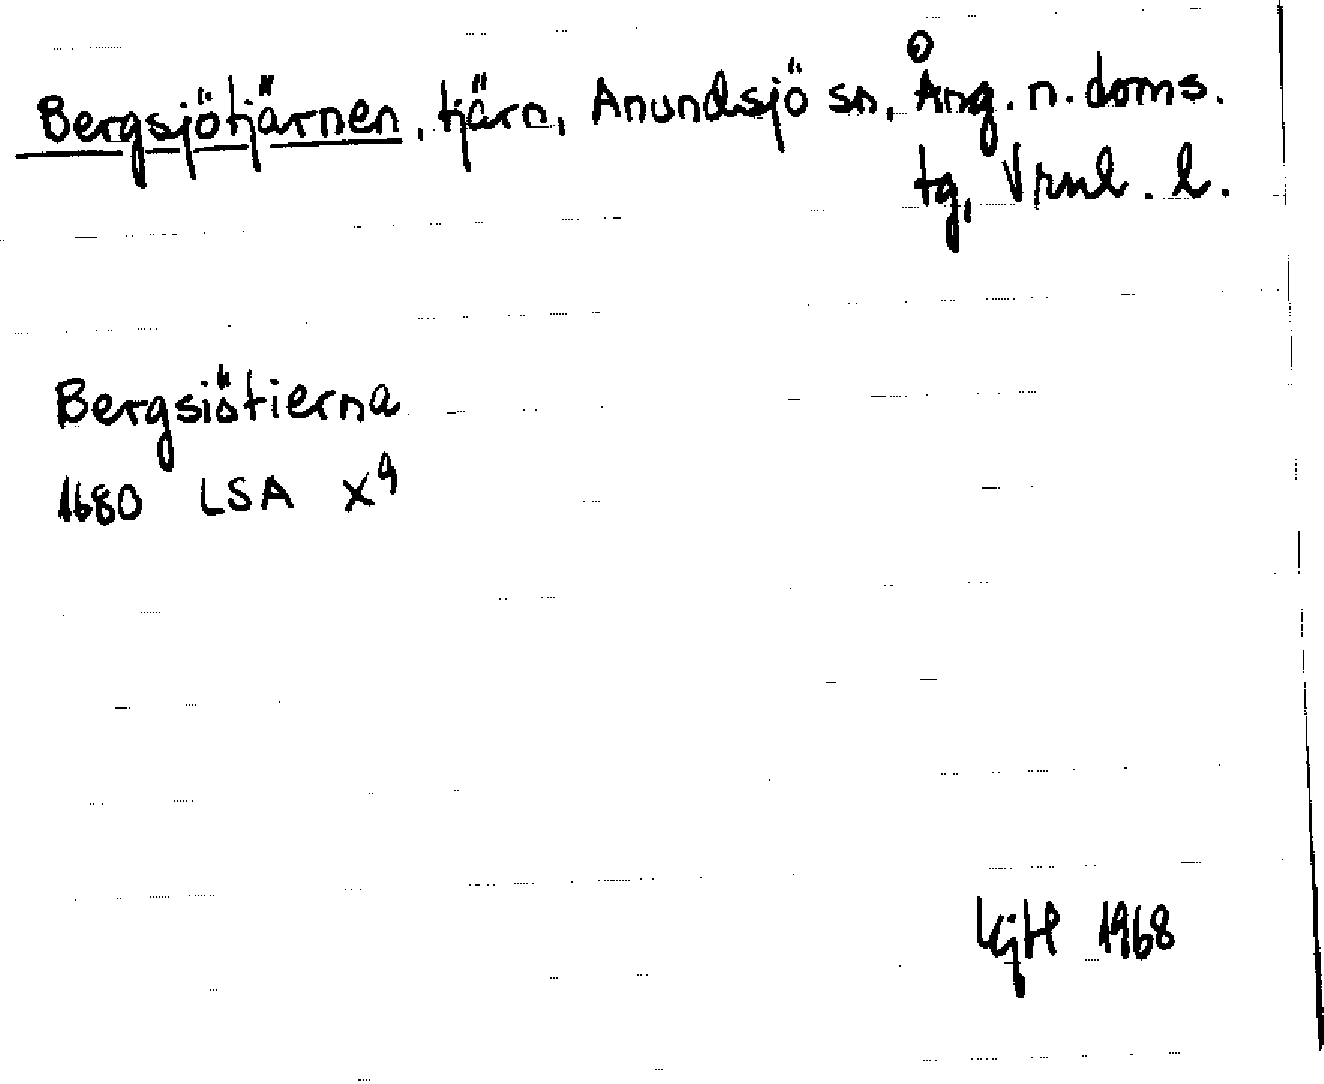 Bergsjötjärnen, tjärn, Anundsjö sn, Ång. n. doms.
tg, Vrnl. l.
Bergsiötierna
1680 LSA X9
LGH 1968